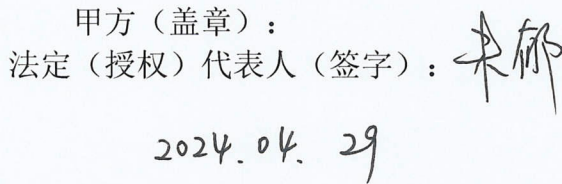 甲方（盖章）：
法定（授权）代表人（签字）：
2024.04.29